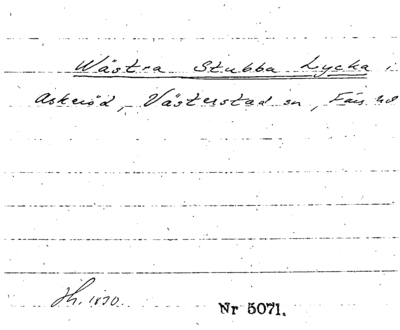 Wästra Stubba Lycka i
Askeröd, Västerstad sn, Färs hd
Jh. 1830. Nr 5071.